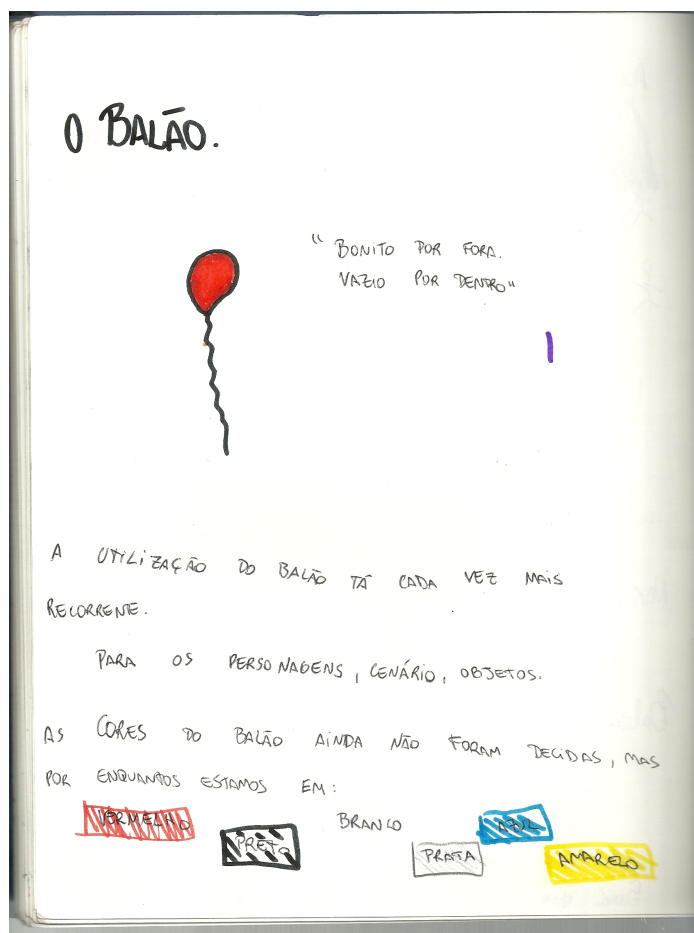 O BALÃO.
"BONITO POR FORA.
VAZIO POR DENTRO"
A UTILIZAÇÃO DO BALÃO TÁ CADA VEZ MAIS
RECORRENTE.
PARA OS PERSONAGENS, CENÁRIO, OBJETOS.
AS CORES DO BALÃO AINDA NÃO FORAM DECIDAS, MAS
POR ENQUANTOS ESTAMOS EM:
VERMELHO PRETO BRANCO PRATA AZUL AMARELO